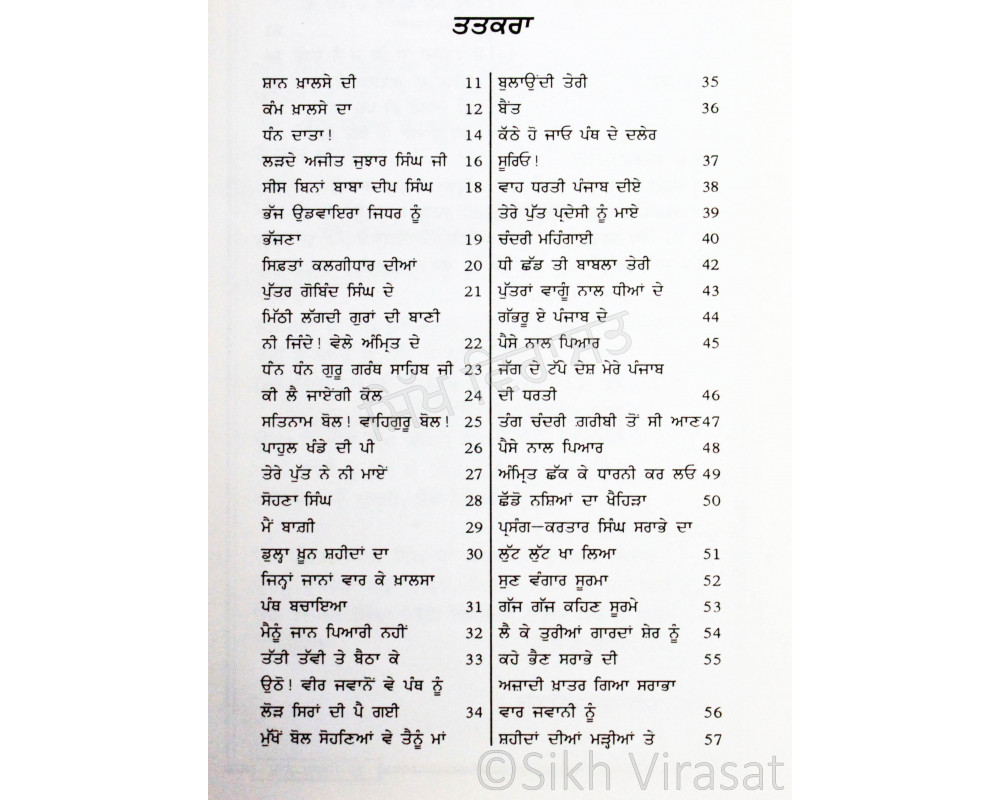 ਤਤਕਰਾ
ਸ਼ਾਨ ਖ਼ਾਲਸੇ ਦੀ 11
ਕੰਮ ਖ਼ਾਲਸੇ ਦਾ 12
ਧੰਨ ਦਾਤਾ! 14
ਲੜਦੇ ਅਜੀਤ ਜੁਝਾਰ ਸਿੰਘ ਜੀ 16
ਸੀਸ ਬਿਨਾਂ ਬਾਬਾ ਦੀਪ ਸਿੰਘ 18
ਭੱਜ ਉਡਵਾਇਰਾ ਜਿਧਰ ਨੂੰ
ਭੱਜਣਾ 19
ਸਿਫ਼ਤਾਂ ਕਲਗੀਧਾਰ ਦੀਆਂ 20
ਪੁੱਤਰ ਗੋਬਿੰਦ ਸਿੰਘ ਦੇ 21
ਮਿੱਠੀ ਲੱਗਦੀ ਗੁਰਾਂ ਦੀ ਬਾਣੀ
ਨੀ ਜਿੰਦੇ! ਵੇਲੇ ਅੰਮ੍ਰਿਤ ਦੇ 22
ਧੰਨ ਧੰਨ ਗੁਰੂ ਗਰੰਥ ਸਾਹਿਬ ਜੀ 23
ਕੀ ਲੈ ਜਾਏਂਗੀ ਕੋਲ 24
ਸਤਿਨਾਮ ਬੋਲ! ਵਾਹਿਗੁਰੂ ਬੋਲ! 25
ਪਾਹੁਲ ਖੰਡੇ ਦੀ ਪੀ 26
ਤੇਰੇ ਪੁੱਤ ਨੇ ਨੀ ਮਾਏਂ 27
ਸੋਹਣਾ ਸਿੰਘ 28
ਮੈਂ ਬਾਗ਼ੀ 29
ਡੁਲ੍ਹਾ ਖ਼ੂਨ ਸ਼ਹੀਦਾਂ ਦਾ 30
ਜਿਨ੍ਹਾਂ ਜਾਨਾਂ ਵਾਰ ਕੇ ਖ਼ਾਲਸਾ
ਪੰਥ ਬਚਾਇਆ 31
ਮੈਨੂੰ ਜਾਨ ਪਿਆਰੀ ਨਹੀਂ 32
ਤੱਤੀ ਤੱਵੀ ਤੇ ਬੈਠਾ ਕੇ 33
ਉਠੋ! ਵੀਰ ਜਵਾਨੋਂ ਵੇ ਪੰਥ ਨੂੰ
ਲੋੜ ਸਿਰਾਂ ਦੀ ਪੈ ਗਈ 34
ਮੁੱਖੋਂ ਬੋਲ ਸੋਹਣਿਆਂ ਵੇ ਤੈਨੂੰ ਮਾਂ
ਬੁਲਾਉਂਦੀ ਤੇਰੀ 35
ਬੈਂਤ 36
ਕੱਠੇ ਹੋ ਜਾਓ ਪੰਥ ਦੇ ਦਲੇਰ
ਸੂਰਿਓ! 37
ਵਾਹ ਧਰਤੀ ਪੰਜਾਬ ਦੀਏ 38
ਤੇਰੇ ਪੁੱਤ ਪ੍ਰਦੇਸੀ ਨੂੰ ਮਾਏ 39
ਚੰਦਰੀ ਮਹਿੰਗਾਈ 40
ਧੀ ਛੱਡ ਤੀ ਬਾਬਲਾ ਤੇਰੀ 42
ਪੁੱਤਰਾਂ ਵਾਗੂੰ ਨਾਲ ਧੀਆਂ ਦੇ 43
ਗੱਭਰੂ ਏ ਪੰਜਾਬ ਦੇ 44
ਪੈਸੇ ਨਾਲ ਪਿਆਰ 45
ਜੱਗ ਦੇ ਟੱਪੇ ਦੇਸ਼ ਮੇਰੇ ਪੰਜਾਬ
ਦੀ ਧਰਤੀ 46
ਤੰਗ ਚੰਦਰੀ ਗ਼ਰੀਬੀ ਤੋਂ ਸੀ ਆਣ 47
ਪੈਸੇ ਨਾਲ ਪਿਆਰ 48
ਅੰਮ੍ਰਿਤ ਛੱਕ ਕੇ ਧਾਰਨੀ ਕਰ ਲਓ 49
ਛੱਡੋ ਨਸ਼ਿਆਂ ਦਾ ਖੈਹਿੜਾ 50
ਪ੍ਰਸੰਗ—ਕਰਤਾਰ ਸਿੰਘ ਸਰਾਭੇ ਦਾ
ਲੁੱਟ ਲੁੱਟ ਖਾ ਲਿਆ 51
ਸੁਣ ਵੰਗਾਰ ਸੂਰਮਾ 52
ਗੱਜ ਗੱਜ ਕਹਿਣ ਸੂਰਮੇ 53
ਲੈ ਕੇ ਤੁਰੀਆਂ ਗਾਰਦਾਂ ਸ਼ੇਰ ਨੂੰ 54
ਕਹੇ ਭੈਣ ਸਰਾਭੇ ਦੀ 55
ਅਜ਼ਾਦੀ ਖ਼ਾਤਰ ਗਿਆ ਸਰਾਭਾ
ਵਾਰ ਜਵਾਨੀ ਨੂੰ 56
ਸ਼ਹੀਦਾਂ ਦੀਆਂ ਮੜ੍ਹੀਆਂ ਤੇ 57
ਸਿੱਖ ਵਿਰਾਸਤ
©Sikh Virasat